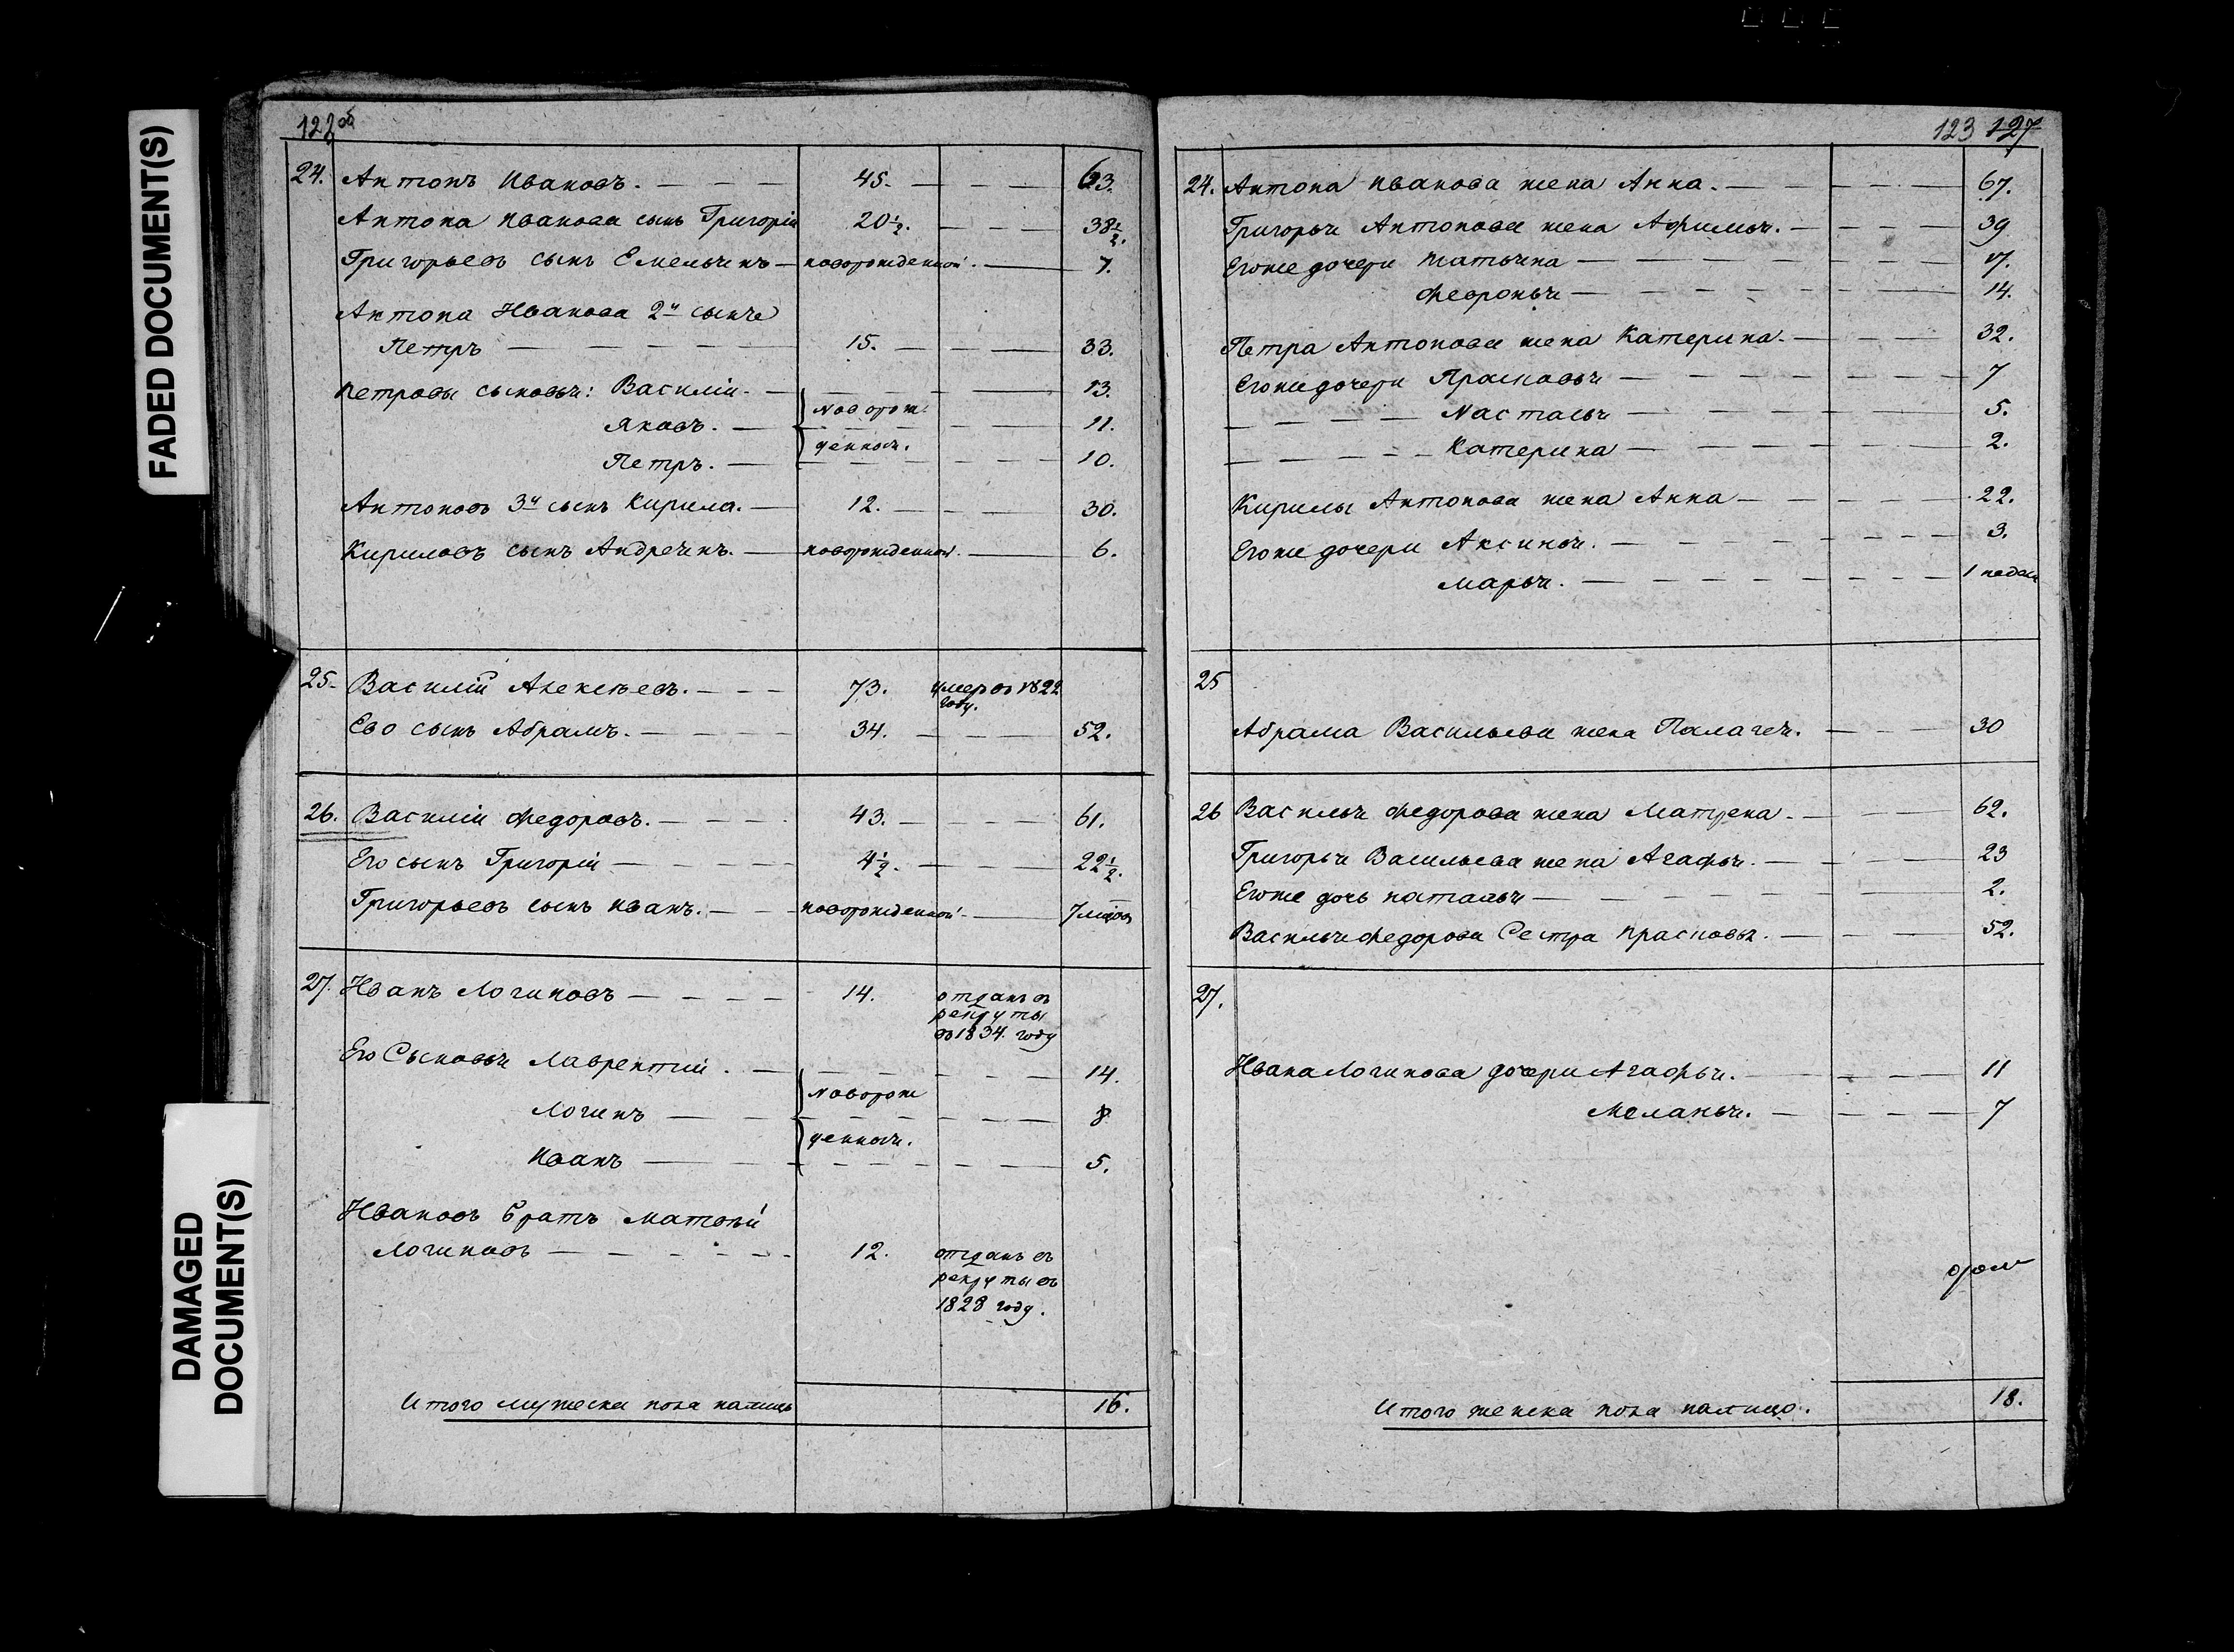 FADED DOCUMENT(S)
DAMAGED
DOCUMENT(S)
122об
24. Антонъ Ивановъ. 45. 63.
Антона Иванова сынъ Григорій 20½. 38½.
Григорьевъ сынъ Емельянъ новорожденной. 7.
Антона Иванова 2й сынъ
Петръ 15. 33.
Петровы сыновья: Василій. 13.
Новорож
Яковъ. 11.
денныя.
Петръ. 10.
Антоновъ 3й сынъ Кирила. 12. 30.
Кириловъ сынъ Андреянъ. новорожденной. 6.
25. Василій Алексѣевъ. 73. умеръ въ 1822
году.
Ево сынъ Абрамъ. 34. 52.
26. Василій Федоровъ. 43. 61.
Его сынъ Григорій 4½. 22½.
Григорьевъ сынъ Иванъ. новорожденной. 7
27. Иванъ Логиновъ 14. отданъ въ
рекруты
въ 1834. году
Его Сыновья Лаврентій. 14.
Новорож
Логинъ 8
денныя.
Иванъ 5.
Ивановъ братъ Матвѣй
Логиновъ 12. отданъ въ
рекруты въ
1828 году.
Итого мужеска пола налицо 16.
123 127
24. Антона Иванова жена Анна. 67.
Григорья Антонова жена Афимья. 39
Егоже дочери Татьяна 17.
Февронья 14.
Петра Антонова жена Катерина. 32.
Егоже дочери Прасковья 7
Настасья 5.
Катерина 2.
Кирилы Антонова жена Анна 22.
Егоже дочери Аксинья. 3.
Марья. 1 недели
25
Абрама Васильева жена Палагея. 30
26 Василья Федорова жена Матрена. 62.
Григорья Васильева жена Агафья. 23
Егоже дочь Наталья 2.
Василья Федорова Сестра Прасковья. 52.
27.
Ивана Логинова дочери Агафья. 11
Меланья. 7
Итого женска пола налицо. 18.